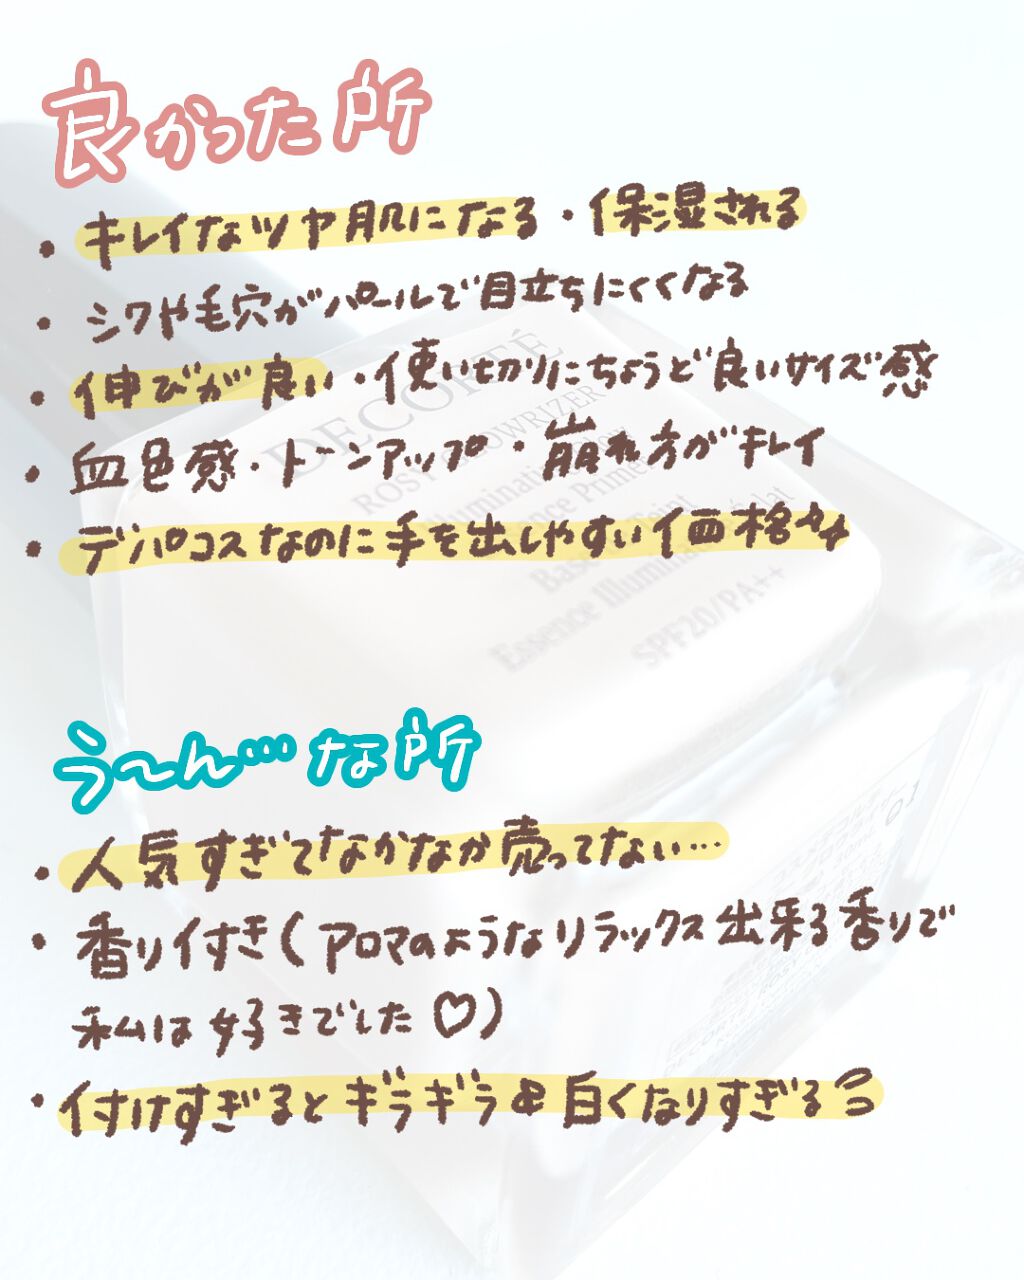 良かった所
・キレイなツヤ肌になる・保湿される
・シワや毛穴がパールで目立ちにくくなる
・伸びが良い・使い切りにちょうど良いサイズ感
・血色感・トーンアップ・崩れ方がキレイ
・デパコスなのに手を出しやすい価格
DECORTÉ
ROSY GLOWRIZER
Essence Illuminat
SPF20/PA++
う〜ん…な所
・人気すぎてなかなか売ってない…
・香り付き(アロマのようなリラックス出来る香りで
私は好きでした♡)
・付けすぎるとギラギラ&白くなりすぎる
01